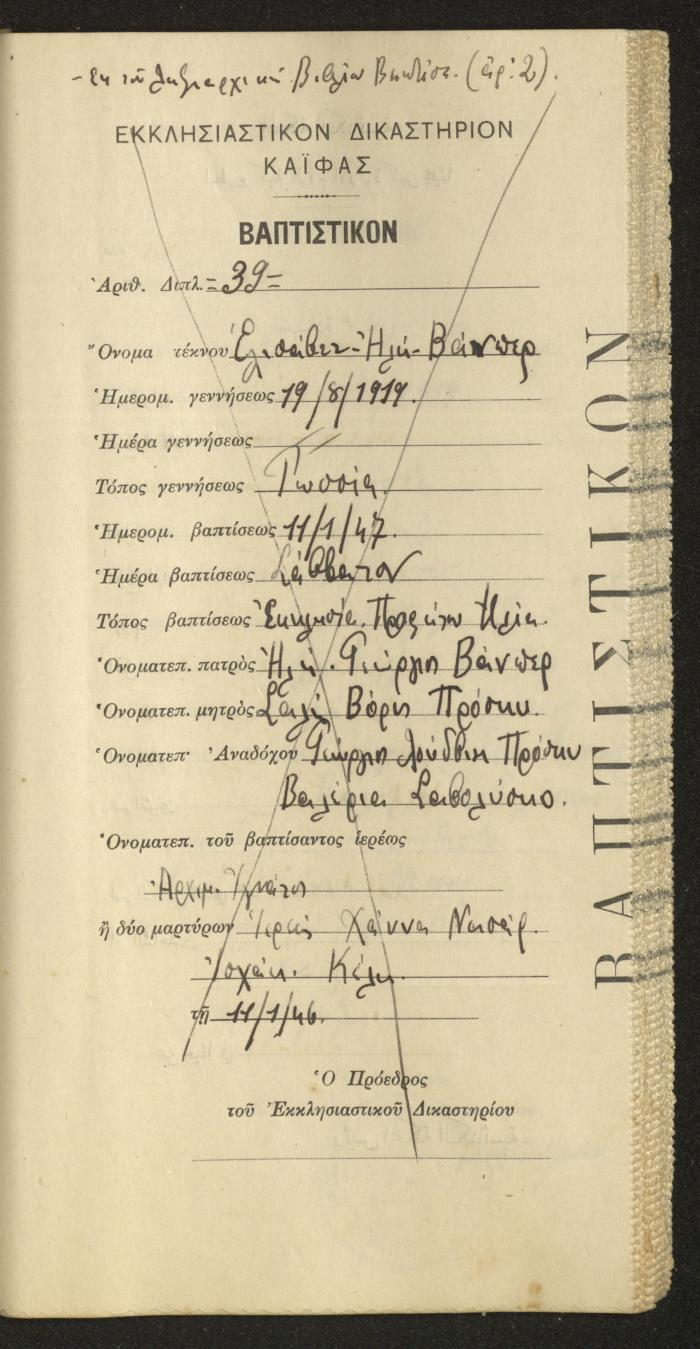 - Ἐκ τοῦ Ληξιαρχικοῦ Βιβλίου Βαπτίσε. (ἀρ: 2).
ΕΚΚΛΗΣΙΑΣΤΙΚΟΝ ΔΙΚΑΣΤΗΡΙΟΝ
ΚΑΪΦΑΣ
ΒΑΠΤΙΣΤΙΚΟΝ
Ἀριθ. Διπλ. = 39 =
Ὄνομα τέκνου Ἐλισάβετ - Ἠλία - Βάνπερ
Ἡμερομ. γεννήσεως 19/8/1919.
Ἡμέρα γεννήσεως
Τόπος γεννήσεως
Ἡμερομ. βαπτίσεως 11/1/47.
Ἡμέρα βαπτίσεως Σάββατον
Τόπος βαπτίσεως Ἐκκλησία Προφήτου Ἠλία
Ὀνοματεπ. πατρὸς Ἠλία Γεώργης Βάνπερ
Ὀνοματεπ. μητρὸς Βόρις Πρόσκυ.
Ὀνοματεπ. Ἀναδόχου Γεώργης Λούδβικ Πρόσκυ
Βαλέρια
Ὀνοματεπ. τοῦ βαπτίσαντος ἱερέως
Ἀρχιμ. Ἰγνάτιος
ἢ δύο μαρτύρων Ἱερεὺς Χάννα Νασάρ.
Ἰσχάκ.
τῇ 11/1/46.
Ὁ Πρόεδρος
τοῦ Ἐκκλησιαστικοῦ Δικαστηρίου
ΒΑΠΤΙΣΤΙΚΟΝ